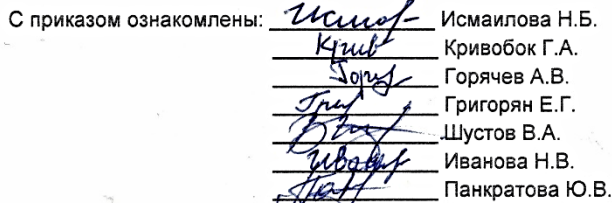 С приказом ознакомлены: Исмаилова Н.Б.
Кривобок Г.А.
Горячев А.В.
Григорян Е.Г.
Шустов В.А.
Иванова Н.В.
Панкратова Ю.В.